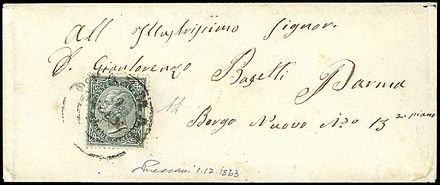 All Illustrissimo Signor.
D. Gianlorenzo Basetti Parma
Borgo Nuovo No. 13 2. piano
1.12.1863